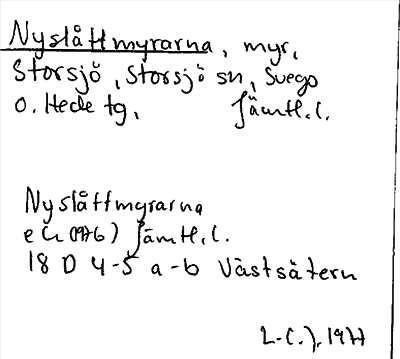 Nyslåttmyrarna, myr,
Storsjö, Storsjö sn, Svegs
o. Hede tg, Jämtl. l.
Nyslåttmyrarna
ek (1976) Jämtl. l.
18 D 4-5 a-b Västsätern
L-C. J. 1977